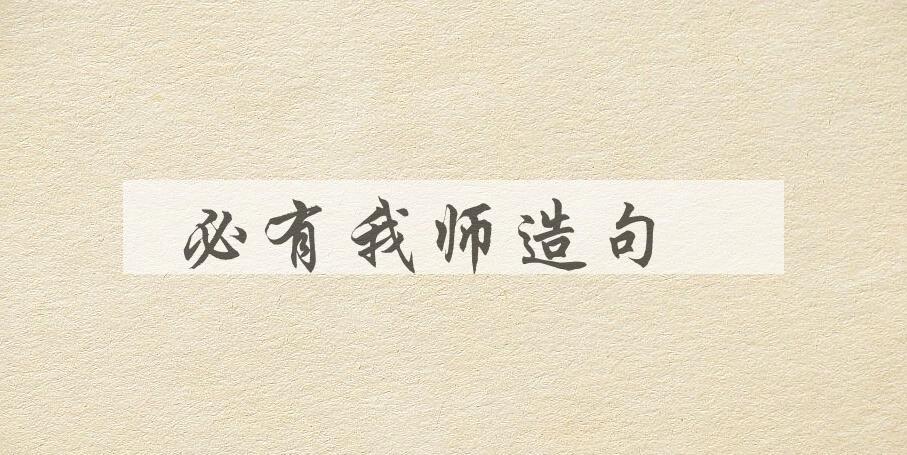 必有我师造句